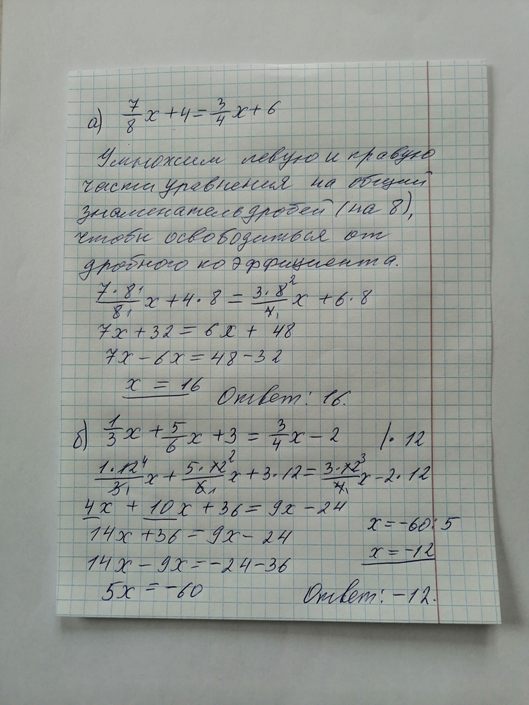 а) 7/8 x + 4 = 3/4 x + 6
Умножим левую и правую
части уравнения на общий
знаменатель дробей (на 8),
чтобы освободиться от
дробного коэффициента.
7·8¹/8₁ x + 4·8 = 3·8²/4₁ x + 6·8
7x + 32 = 6x + 48
7x – 6x = 48 – 32
x = 16
Ответ: 16.
б) 1/3 x + 5/6 x + 3 = 3/4 x – 2 /· 12
1·12⁴/3₁ x + 5·12²/6₁ x + 3·12 = 3·12³/4₁ x – 2·12
4x + 10x + 36 = 9x – 24
14x + 36 = 9x – 24
14x – 9x = –24 – 36
5x = –60
x = –60 : 5
x = –12
Ответ: –12.